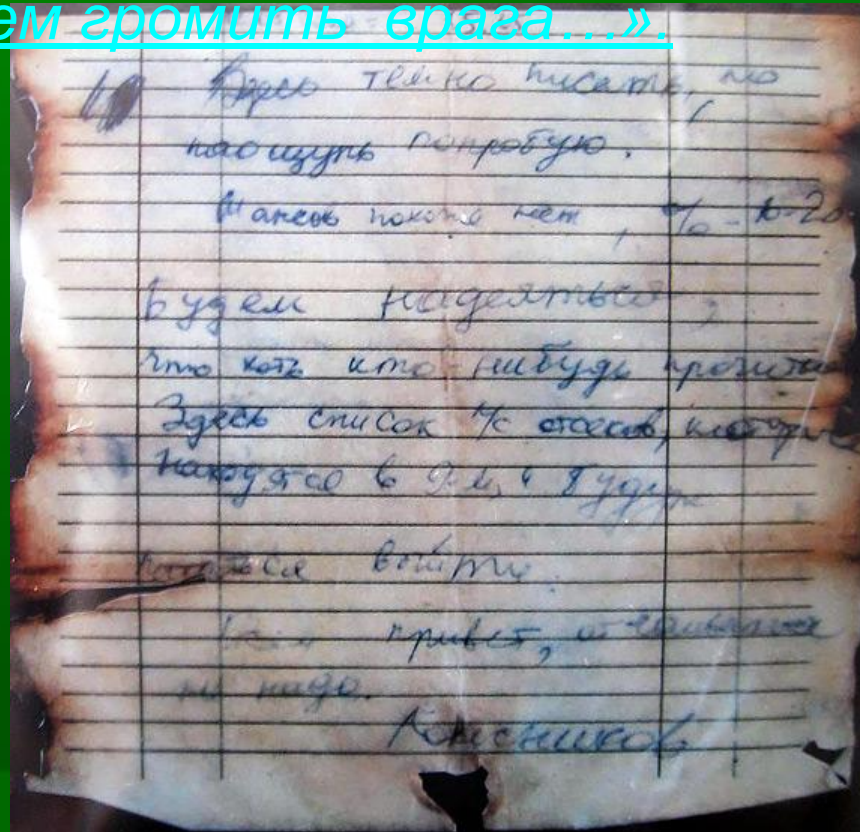 ем громить врага...».
Здесь темно писать, но
наощупь попробую.
Шансов похоже нет, % - 10-20
Будем надеяться,
что хоть кто-нибудь прочитает
Здесь список л/с отсеков, которые
находятся в 9-м и будут
пытаться выйти.
Всем привет, отчаиваться
не надо.
Колесников